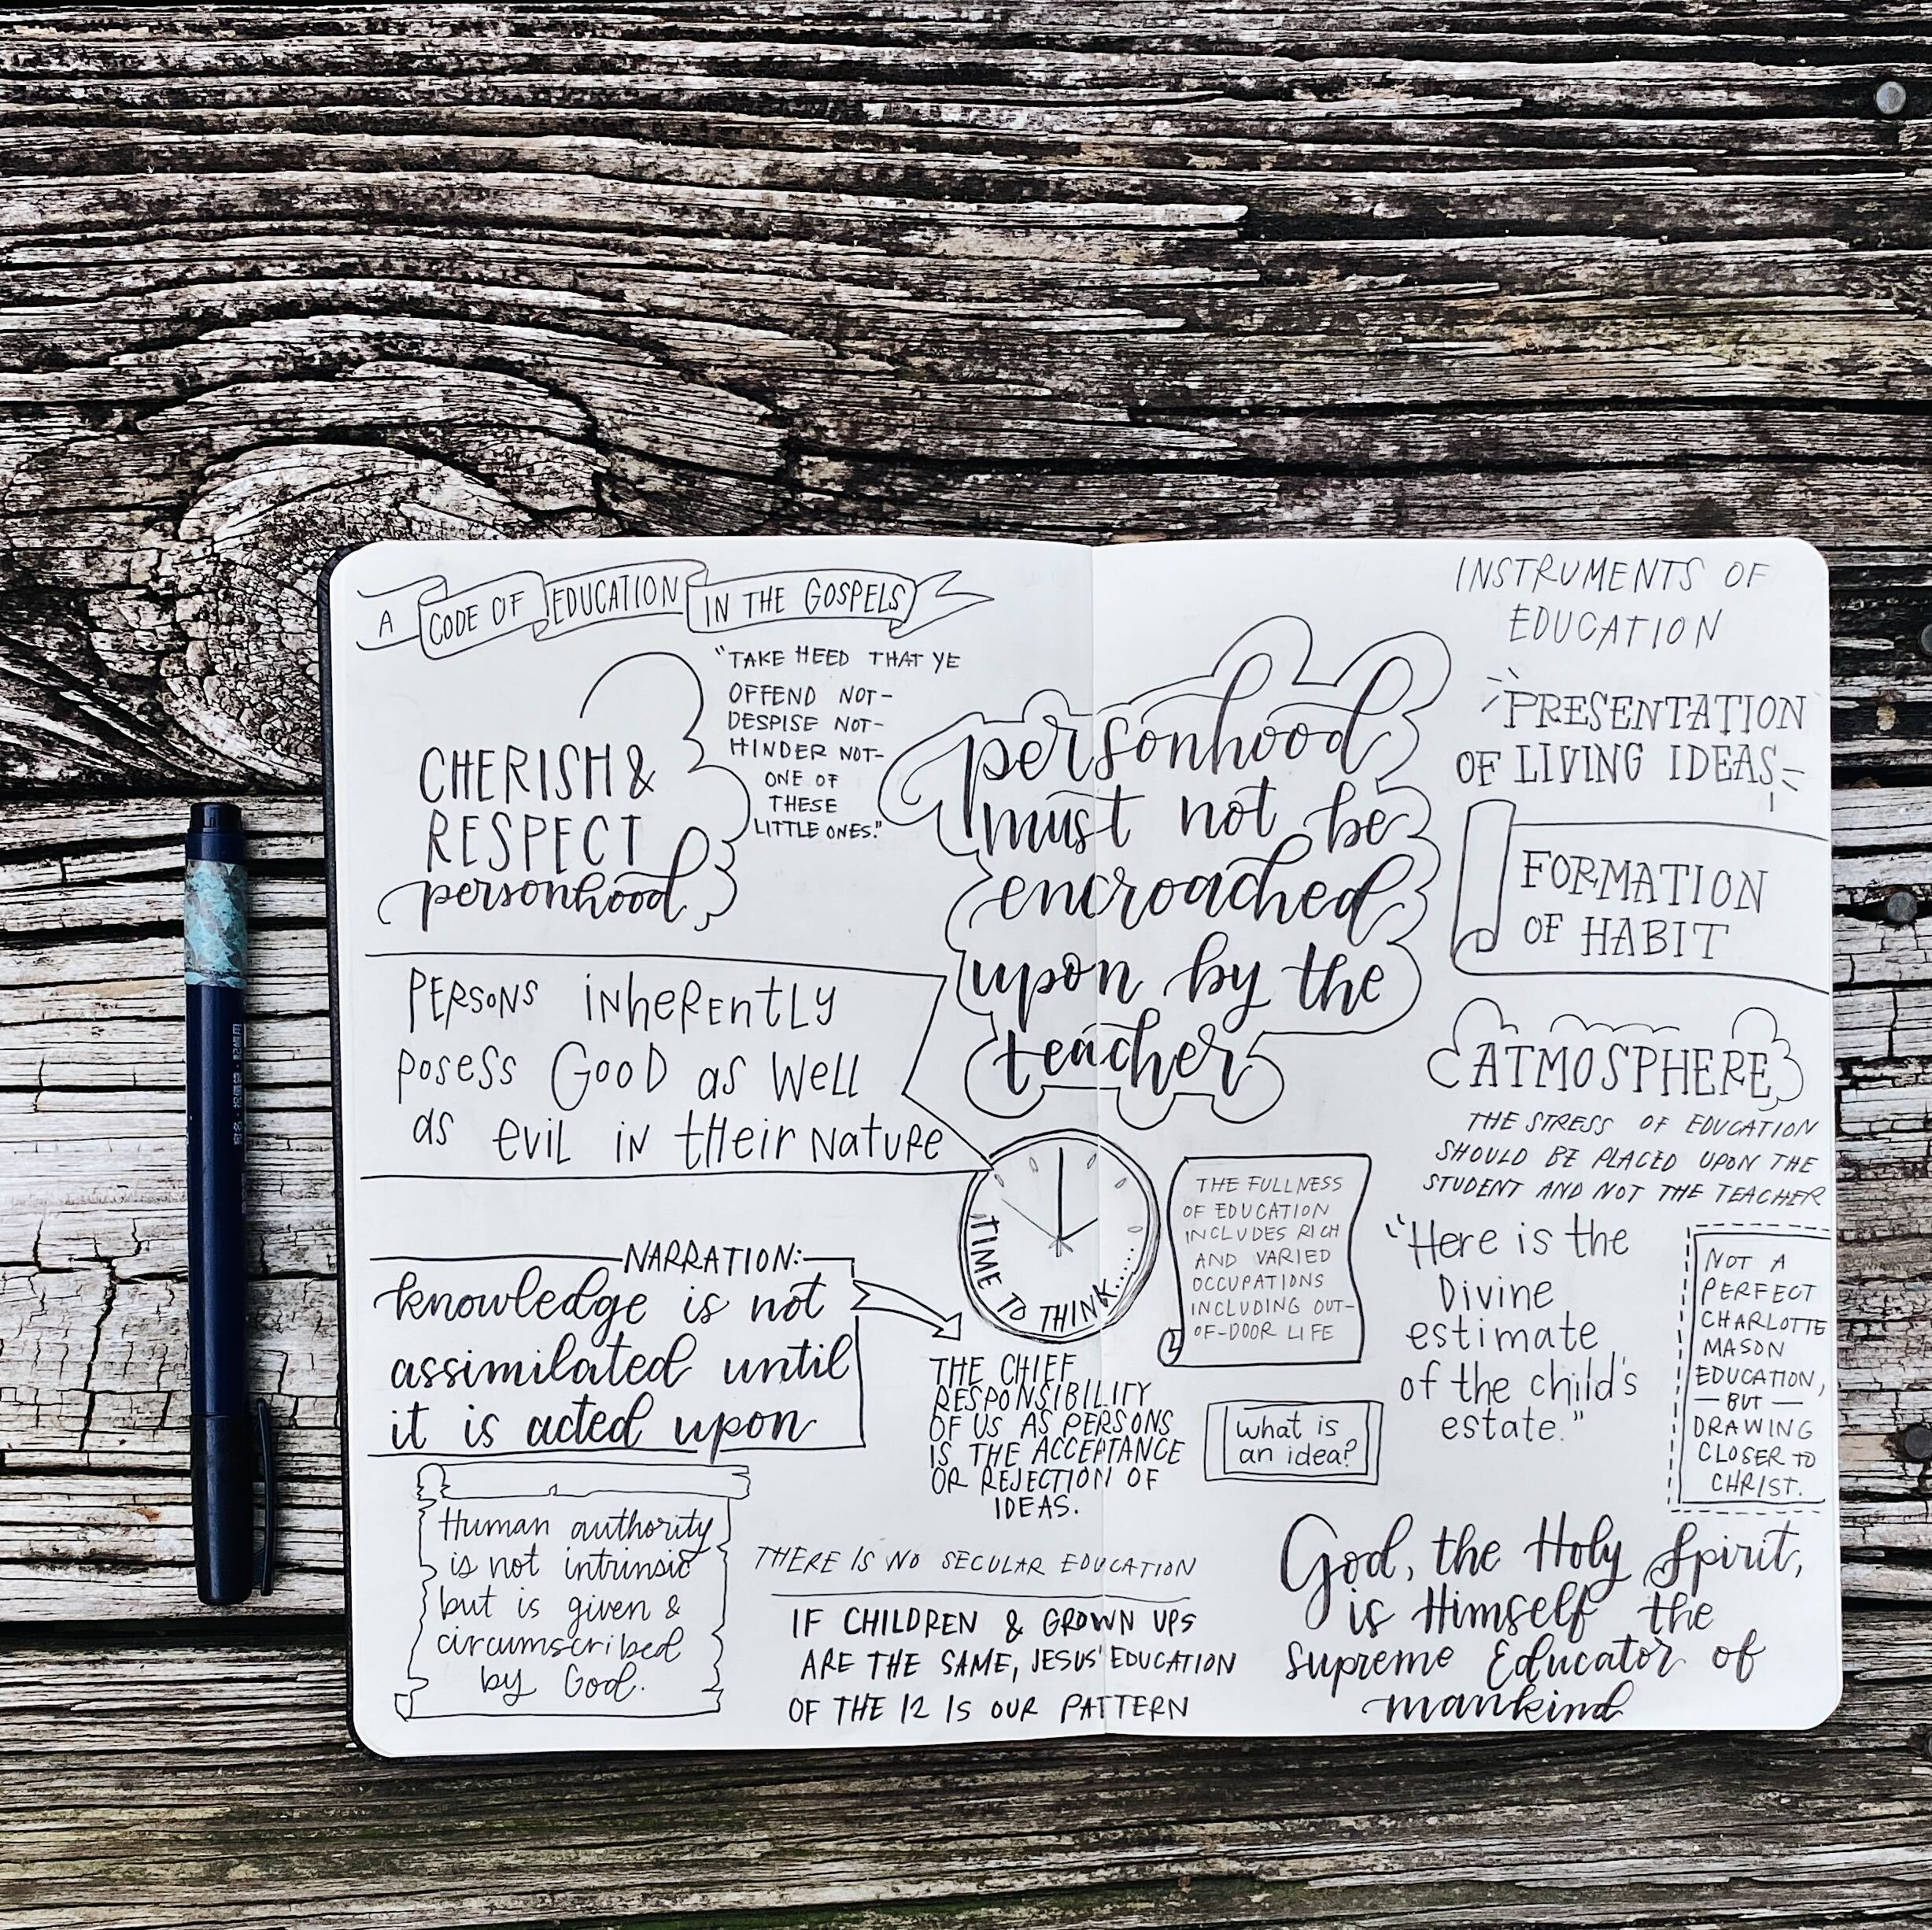 A CODE OF EDUCATION IN THE GOSPELS
CHERISH &
RESPECT
personhood
"TAKE HEED THAT YE
OFFEND NOT-
DESPISE NOT-
HINDER NOT-
ONE OF
THESE
LITTLE ONES."
PERSONS inherently
posess Good as well
as evil in their nature
NARRATION:
knowledge is not
assimilated until
it is acted upon
Human authority
is not intrinsic
but is given &
circumscribed
by God.
personhood
must not be
encroached
upon by the
teacher
TIME TO THINK......
THE CHIEF
RESPONSIBILITY
OF US AS PERSONS
IS THE ACCEPTANCE
OR REJECTION OF
IDEAS.
THERE IS NO SECULAR EDUCATION
IF CHILDREN & GROWN UPS
ARE THE SAME, JESUS' EDUCATION
OF THE 12 IS OUR PATTERN
THE FULLNESS
OF EDUCATION
INCLUDES RICH
AND VARIED
OCCUPATIONS
INCLUDING OUT-
OF-DOOR LIFE
what is
an idea?
INSTRUMENTS OF
EDUCATION
PRESENTATION
OF LIVING IDEAS
FORMATION
OF HABIT
ATMOSPHERE
THE STRESS OF EDUCATION
SHOULD BE PLACED UPON THE
STUDENT AND NOT THE TEACHER
"Here is the
Divine
estimate
of the child's
estate."
NOT A
PERFECT
CHARLOTTE
MASON
EDUCATION,
— BUT —
DRAWING
CLOSER TO
CHRIST.
God, the Holy Spirit,
is Himself the
Supreme Educator of
mankind